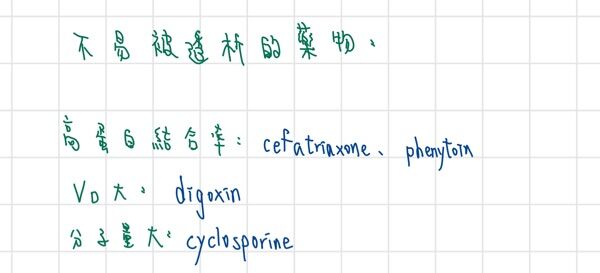 不易被透析的藥物：
高蛋白結合率：cefatriaxone、phenytoin
VD大：digoxin
分子量大：cyclosporine